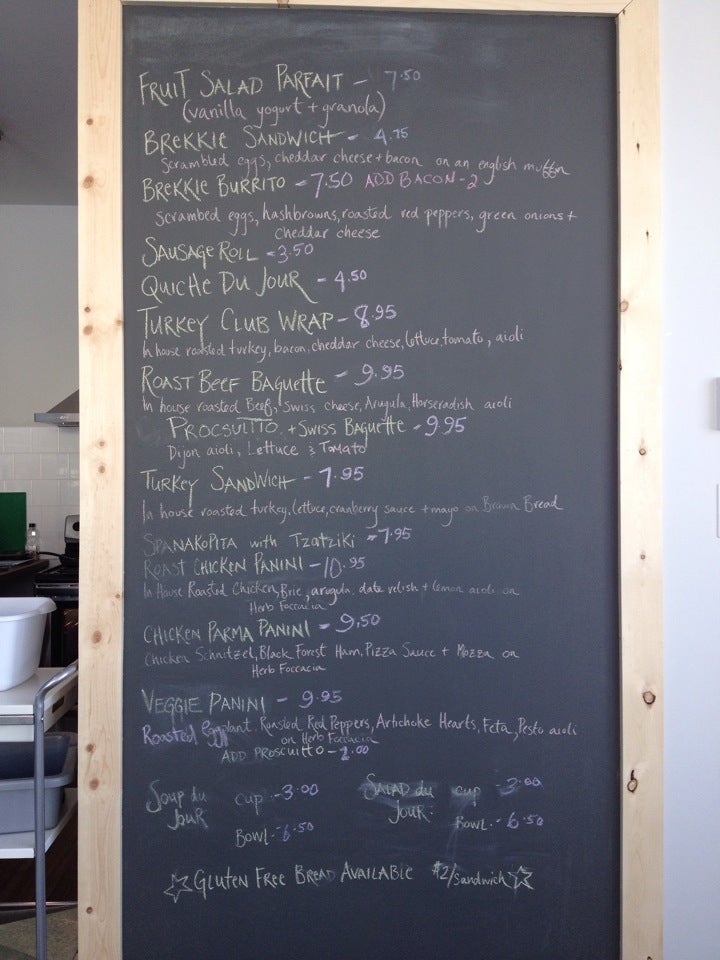 FRUIT SALAD PARFAIT - 7.50
(vanilla yogurt + granola)
BREKKIE SANDWICH - 4.75
scrambled eggs, cheddar cheese + bacon on an english muffin
BREKKIE BURRITO - 7.50 ADD BACON - 2
scrambed eggs, hashbrowns, roasted red peppers, green onions +
cheddar cheese
SAUSAGE ROLL - 3.50
QUICHE DU JOUR - 4.50
TURKEY CLUB WRAP - 8.95
In house roasted turkey, bacon, cheddar cheese, lettuce, tomato, aioli
ROAST BEEF BAGUETTE - 9.95
In house roasted Beef, Swiss cheese, Arugula, Horseradish aioli
PROCSUITTO + SWISS BAGUETTE - 9.95
Dijon aioli, Lettuce & Tomato
TURKEY SANDWICH - 7.95
In house roasted turkey, lettuce, cranberry sauce + mayo on Brown Bread
SPANAKOPITA with TZATZIKI - 7.95
ROAST CHICKEN PANINI - 10.95
In House Roasted Chicken, Brie, arugula, date relish + lemon aioli on
Herb Foccacia
CHICKEN PARMA PANINI - 9.50
Chicken Schnitzel, Black Forest Ham, Pizza Sauce + Mozza on
Herb Foccacia
VEGGIE PANINI - 9.95
Roasted Eggplant, Roasted Red Peppers, Artichoke Hearts, Feta, Pesto aioli
on Herb Foccacia
ADD PROSCUITTO - 2.00
Soup du JOUR cup - 3.00
Bowl - 6.50
SALAD du JOUR: cup - 3.00
Bowl - 6.50
☆ GLUTEN FREE BREAD AVAILABLE $2/sandwich ☆